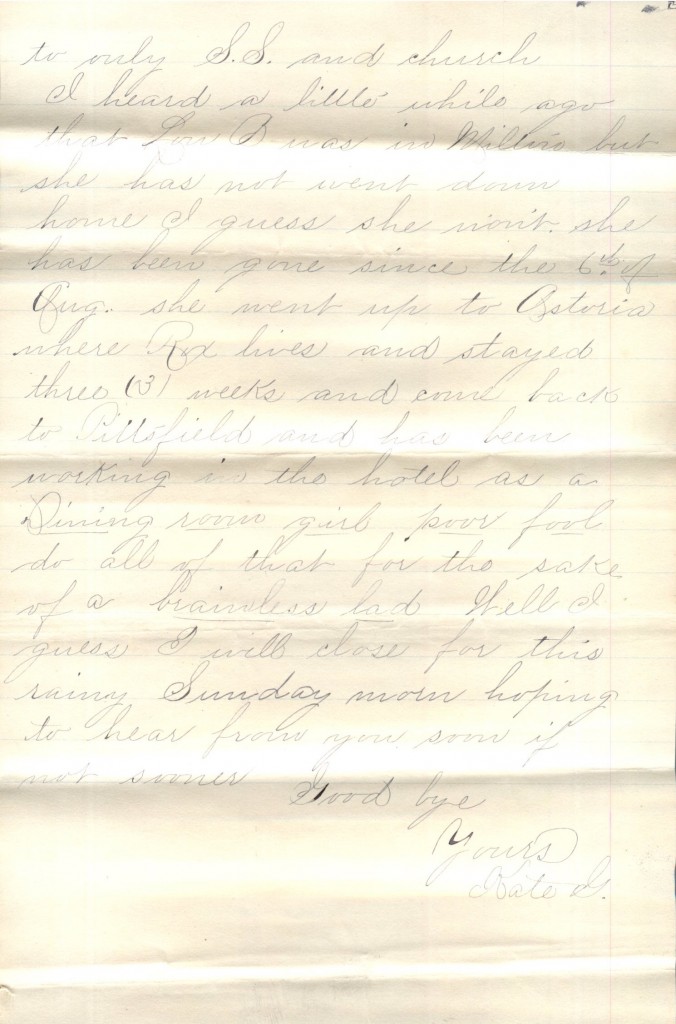 to only S.S. and church
I heard a little while ago
that Lou B was in Milton but
she has not went down
home I guess she won't. she
has been gone since the 6th of
Aug. she went up to Astoria
where Rox lives and stayed
three (3) weeks and come back
to Pittsfield and has been
working in the hotel as a
Dining room girl poor fool
do all of that for the sake
of a brainless lad Well I
guess I will close for this
rainy Sunday morn hoping
to hear from you soon if
not sooner Good bye
Yours
Kate G.